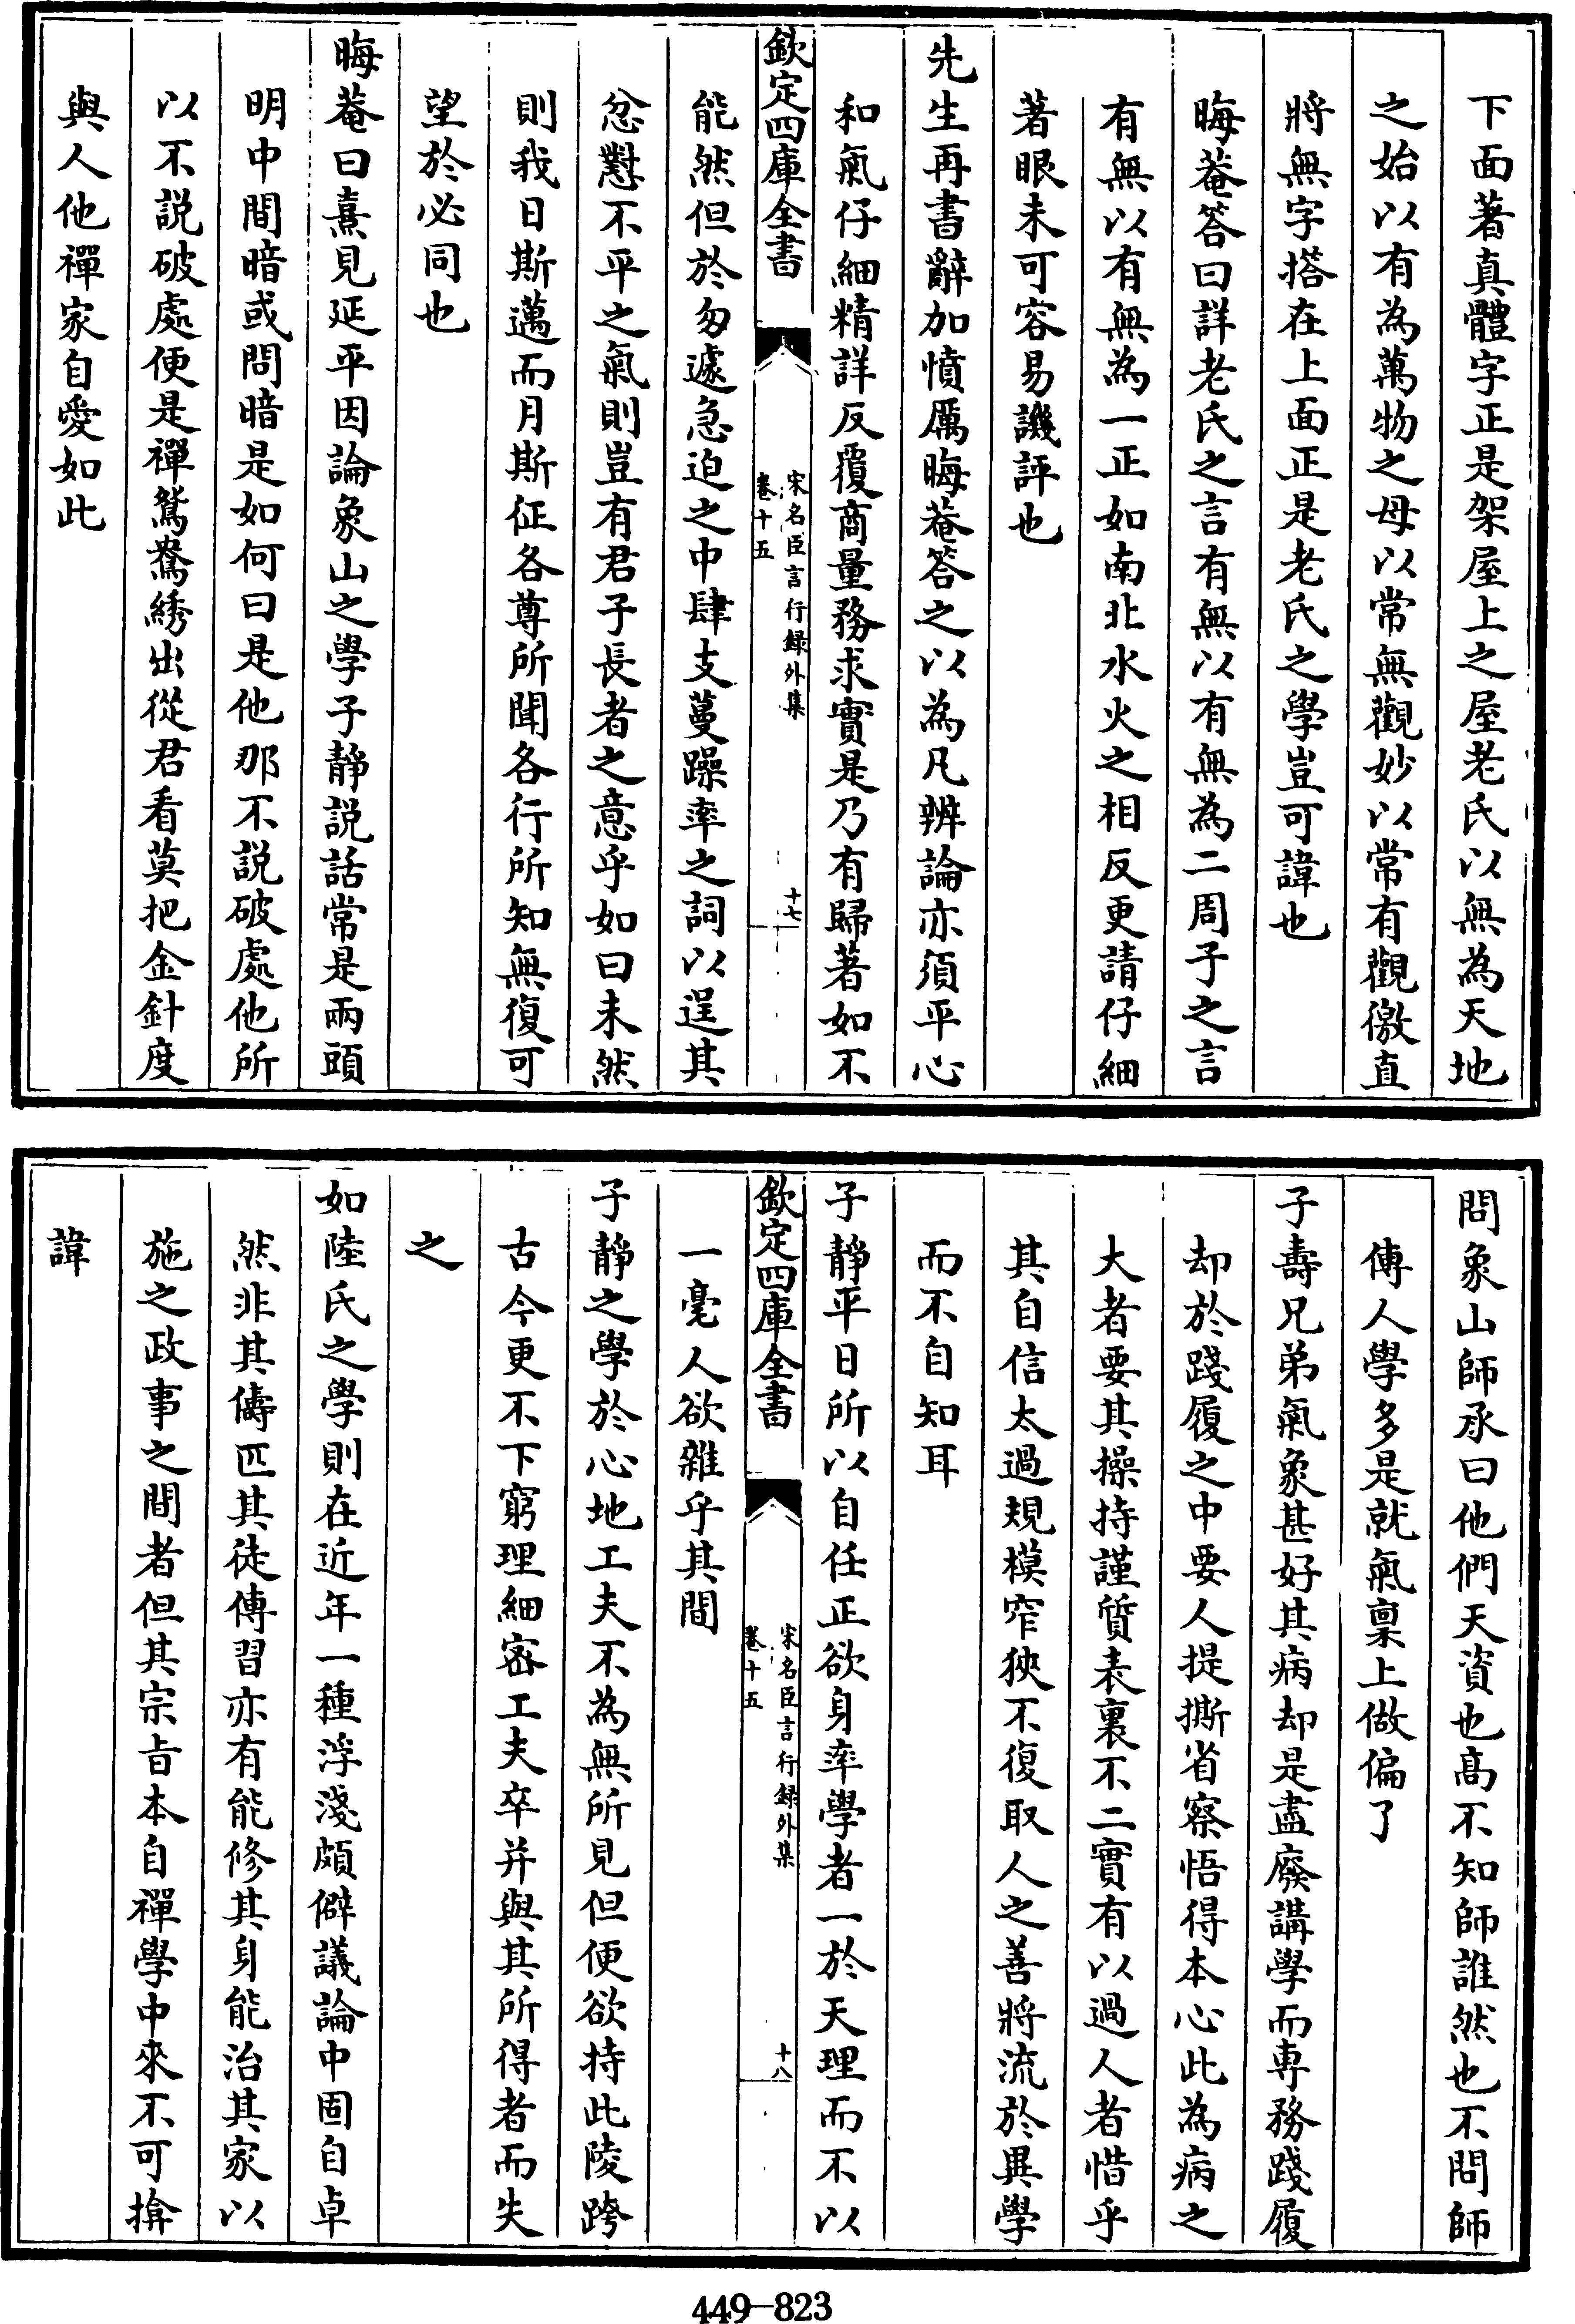 下面著真體字正是架屋上之屋老氏以無為天地
之始以有為萬物之母以常無觀妙以常有觀徼直
將無字搭在上面正是老氏之學豈可諱也
晦菴答曰詳老氏之言有無以有無為二周子之言
有無以有無為一正如南北水火之相反更請仔細
著眼未可容易譏評也
先生再書辭加憤厲晦菴答之以為凡辨論亦須平心
和氣仔細精詳反覆商量務求實是乃有歸著如不
欽定四庫全書
宋名臣言行録外集
卷十五
十七
能然但於匆遽急迫之中肆支蔓躁率之詞以逞其
忿懟不平之氣則豈有君子長者之意乎如曰未然
則我日斯邁而月斯征各尊所聞各行所知無復可
望於必同也
晦菴曰熹見延平因論象山之學子靜説話常是兩頭
明中間暗或問暗是如何曰是他那不説破處他所
以不説破處便是禪鴛鴦綉出從君看莫把金針度
與人他禪家自愛如此
問象山師承曰他們天資也高不知師誰然也不問師
傳人學多是就氣稟上做偏了
子壽兄弟氣象甚好其病却是盡廢講學而專務踐履
却於踐履之中要人提撕省察悟得本心此為病之
大者要其操持謹質表裏不二實有以過人者惜乎
其自信太過規模窄狹不復取人之善將流於異學
而不自知耳
子靜平日所以自任正欲身率學者一於天理而不以
欽定四庫全書
宋名臣言行録外集
卷十五
十八
一毫人欲雜乎其間
子靜之學於心地工夫不為無所見但便欲持此陵跨
古今更不下窮理細密工夫卒并與其所得者而失
之
如陸氏之學則在近年一種浮淺頗僻議論中固自卓
然非其儔匹其徒傳習亦有能修其身能治其家以
施之政事之間者但其宗旨本自禪學中來不可揜
諱
449—823